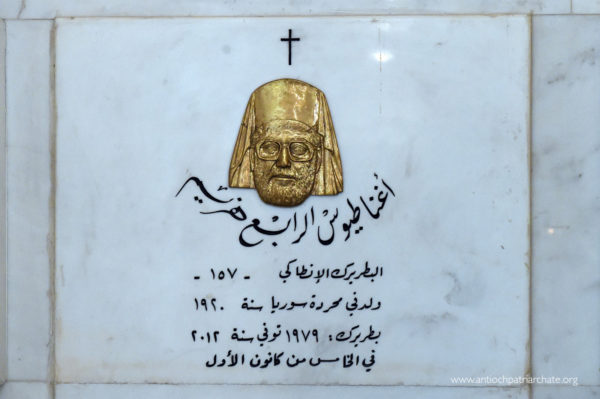 أغناطيوس الرابع هزيم
البطريرك الإنطاكي - ١٥٧ -
ولد في محردة سوريا سنة ١٩٢٠
بطريرك: ١٩٧٩ توفي سنة ٢٠١٢
في الخامس من كانون الأول
www.antiochpatriarchate.org